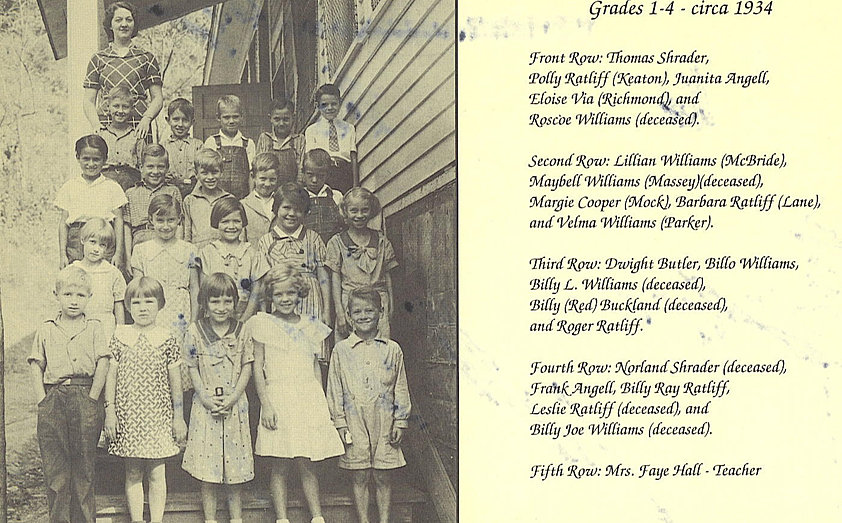 Grades 1-4 - circa 1934
Front Row: Thomas Shrader,
Polly Ratliff (Keaton), Juanita Angell,
Eloise Via (Richmond), and
Roscoe Williams (deceased).
Second Row: Lillian Williams (McBride),
Maybell Williams (Massey)(deceased),
Margie Cooper (Mock), Barbara Ratliff (Lane),
and Velma Williams (Parker).
Third Row: Dwight Butler, Billo Williams,
Billy L. Williams (deceased),
Billy (Red) Buckland (deceased),
and Roger Ratliff.
Fourth Row: Norland Shrader (deceased),
Frank Angell, Billy Ray Ratliff,
Leslie Ratliff (deceased), and
Billy Joe Williams (deceased).
Fifth Row: Mrs. Faye Hall - Teacher